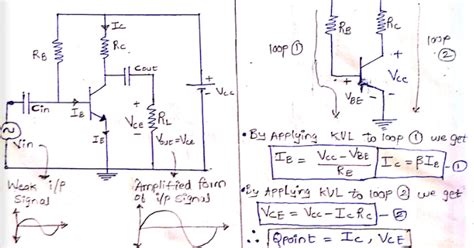 RB
IC
RC
Cout
Cin
IB
IE
VCE
RL
VCC
Vout=VCE
Vin
Weak i/p
Signal
Amplified form
of i/p Signal
loop ①
RB
RC
VCC
VBE
loop
②
• By Applying KVL to loop ① we get
IB = VCC-VBE / RB
IC = βIB -①
• By Applying KVL to loop ② we get
VCE = VCC-ICRC -②
∴ Qpoint = IC, VCE